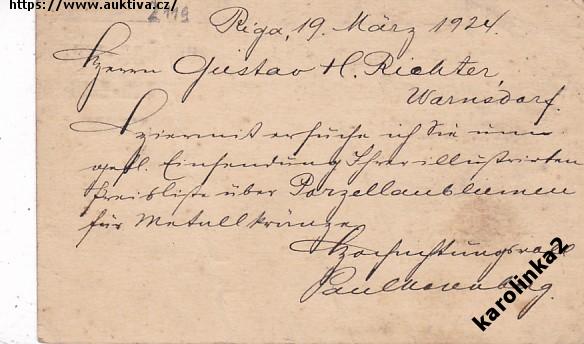 https://www.auktiva.cz/
2119
Riga, 19. März 1924.
Herrn Gustav H. Richter,
Warnsdorf.
Hiermit ersuche ich Sie um
gefl. Einsendung Ihrer illustrierten
Preisliste über Porzellanblumen
für Metallkränze
Hochachtungsvoll
Paul
karolinka2